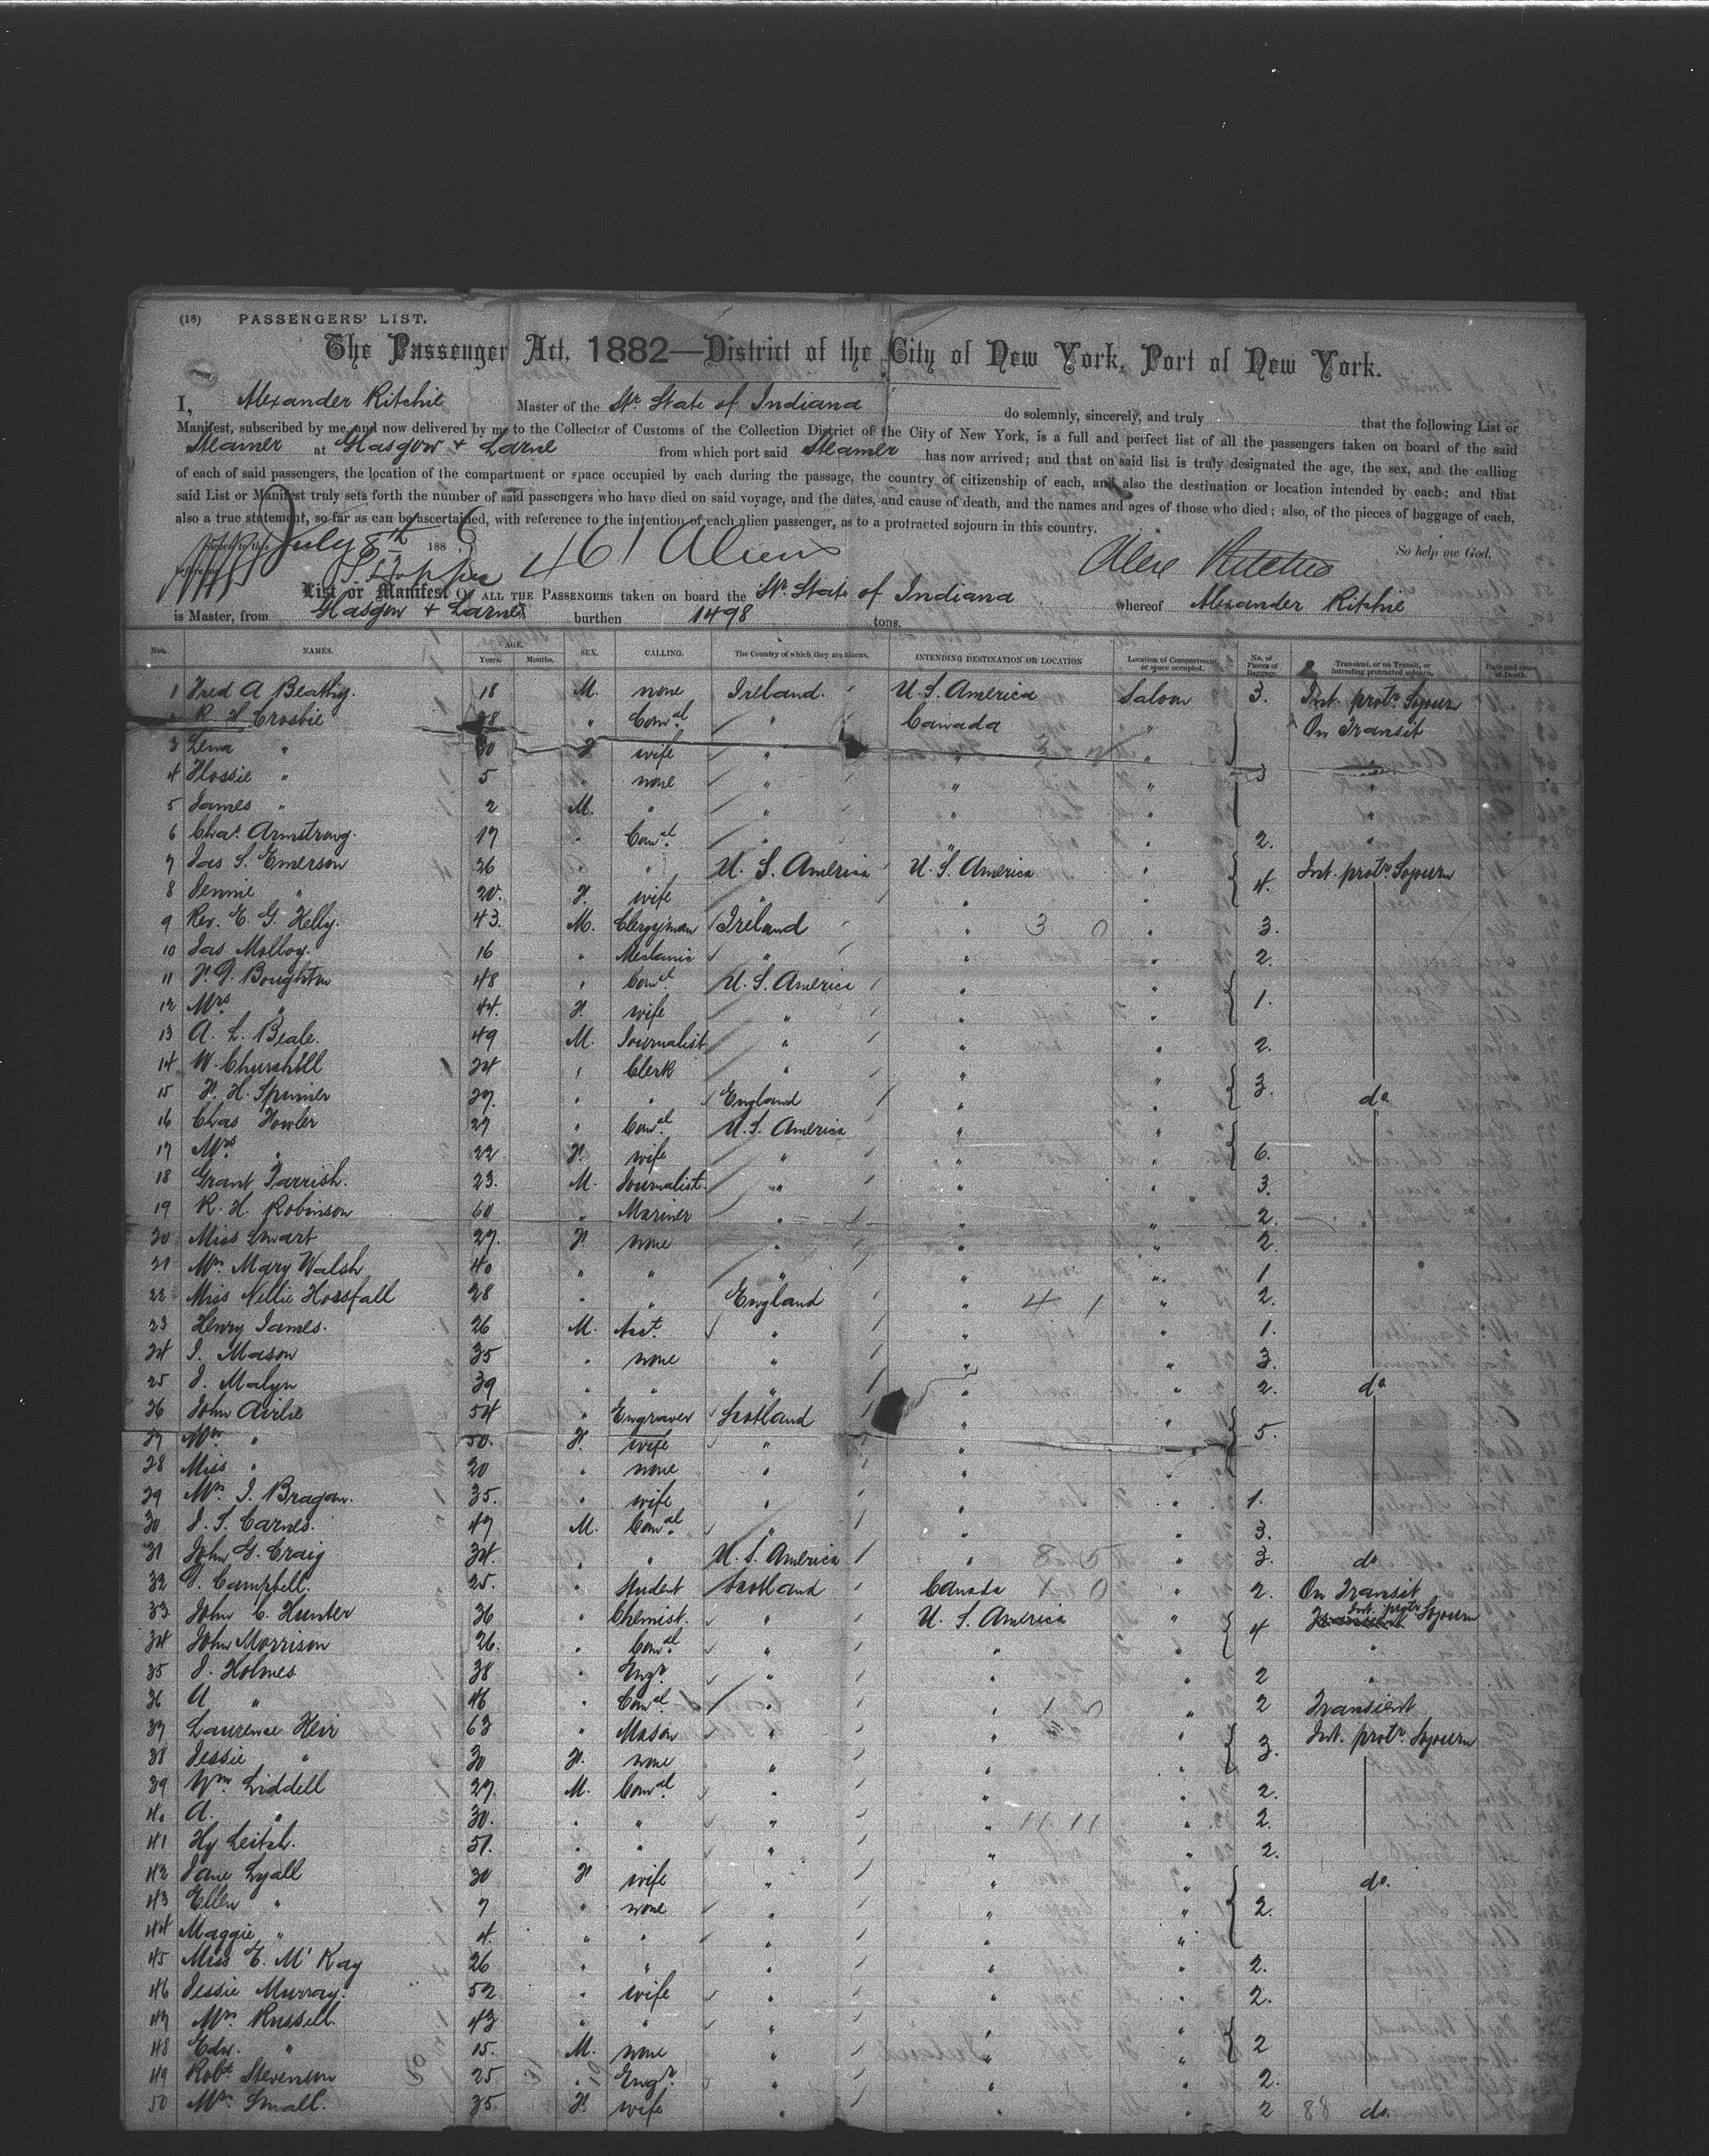 (18) PASSENGERS' LIST.
The Passenger Act, 1882—District of the City of New York, Port of New York.
I, Alexander Ritchie Master of the Str State of Indiana do solemnly, sincerely, and truly that the following List or
Manifest, subscribed by me, and now delivered by me to the Collector of Customs of the Collection District of the City of New York, is a full and perfect list of all the passengers taken on board of the said
Steamer at Glasgow + Larne from which port said Steamer has now arrived; and that on said list is truly designated the age, the sex, and the calling
of each of said passengers, the location of the compartment or space occupied by each during the passage, the country of citizenship of each, and also the destination or location intended by each; and that
said List or Manifest truly sets forth the number of said passengers who have died on said voyage, and the dates, and cause of death, and the names and ages of those who died; also, of the pieces of baggage of each,
also a true statement, so far as can be ascertained, with reference to the intention of each alien passenger, as to a protracted sojourn in this country.
July 8th 1886 461 Aliens Alex Ritchie So help me God.
List or Manifest OF ALL THE PASSENGERS taken on board the Str State of Indiana whereof Alexander Ritchie
is Master, from Glasgow + Larne burthen 1498 tons.
Nos. NAMES. AGE. Years. Months. SEX. CALLING. The Country of which they are citizens. INTENDING DESTINATION OR LOCATION Location of Compartment or space occupied. No. of Pieces of Baggage. Transient, or on Transit, or intending protracted sojourn. Date and cause of Death.
1 Fred A Beatty. 18 M. none Ireland. U.S. America Saloon 3. Int. protr. Sojourn
R. H. Crosbie 28 " Comal " Canada " On Transit
3 Lena " 30 F wife " " "
4 Flossie " 5 " none " " " 3 "
5 James " 2 M. " " " " "
6 Chas. Armstrong. 17 " Comal " " " 2. "
7 Jas S. Emerson 26 " " U. S. America U. S. America " Int. protr. Sojourn
8 Jennie " 20. F. wife " " " 4.
9 Rev. E. G. Kelly. 43. M. Clergyman Ireland " 3 0 " 3.
10 Jas Molloy. 16 " Mechanic " " " 2.
11 F. J. Boughton 48 " Comal U. S. America " "
12 Mrs " 44. F. wife " " " 1.
13 A. L. Beale. 49 M. Journalist " " " 2.
14 W. Churchill 24 " Clerk " " "
15 F. H. Spinner 27. " " England " " 3. do
16 Chas Fowler 27 " Comal U. S. America " "
17 Mrs " 22 F. wife " " " 6.
18 Grant Parrish. 23. M. Journalist. " " " 3.
19 R. H. Robinson 60 " Mariner " " " 2.
20 Miss Smart 27. F. none " " " 2.
21 Mrs Mary Walsh 40 " " " " " 1
22 Miss Nellie Horsfall 28 " " England " 4 1 " 2.
23 Henry James. 26 M. Acct. " " " 1.
24 J. Mason 35 " none " " " 3.
25 J. Malyn 39 " " " " " 2. do
26 John Airlie 54 " Engraver Scotland " "
27 Mrs " 50. F. wife " " 5.
28 Miss " 20 " none " "
29 Mrs J. Bragan. 35. " wife " " " 1.
30 J. S. Carnes. 47 M. Comal " " " 3.
31 John G. Craig 34. " " U. S. America " 8 5 " 3. do
32 J. Campbell. 25. " Student Scotland Canada 1 0 " 2. On Transit
33 John C. Hunter 36 " Chemist. " U. S. America " Int. protr Sojourn
34 John Morrison 26. " Comal " " " 4 "
35 J. Holmes 38 " Engr. " " " 2 "
36 A " 46 " Comal " " 1 0 " 2 Transient
37 Laurence Keir 63 " Mason " " " Int. protr. Sojourn
38 Jessie " 30 F. none " " " 3.
39 Wm Liddell 27. M. Comal " " " 2.
40 A. " 30. " " " " 11 11 " 2.
41 Hy Leitch. 51. " " " " " 2.
42 Jane Lyall 30 F wife " " " do.
43 Ellen " 7 " none " " " 2.
44 Maggie " 4. " " " " "
45 Miss E. McKay 26 " " " " " 2.
46 Jessie Murray. 52 " wife " " " 2.
47 Mrs Russell. 43 " " " " "
48 Edw. " 15. M. none " " " 2
49 Robt Stevenson 25 " Engr. " " " 2.
50 Mrs Small. 35. F. wife " " " 2 88 do.